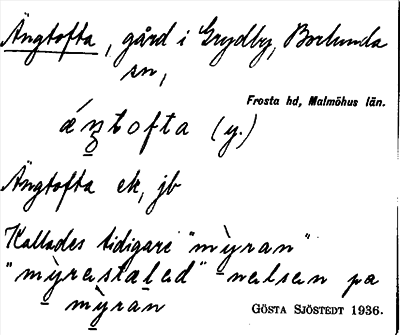 Ängtofta, gård i Grydby, Borlunda
sn,
Frosta hd, Malmöhus län.
áŋtofta (y.)
Ängtofta ek, jb
Kallades tidigare "mỳran"
"mỳrastaləd" pa
mỳran
GÖSTA SJÖSTEDT 1936.